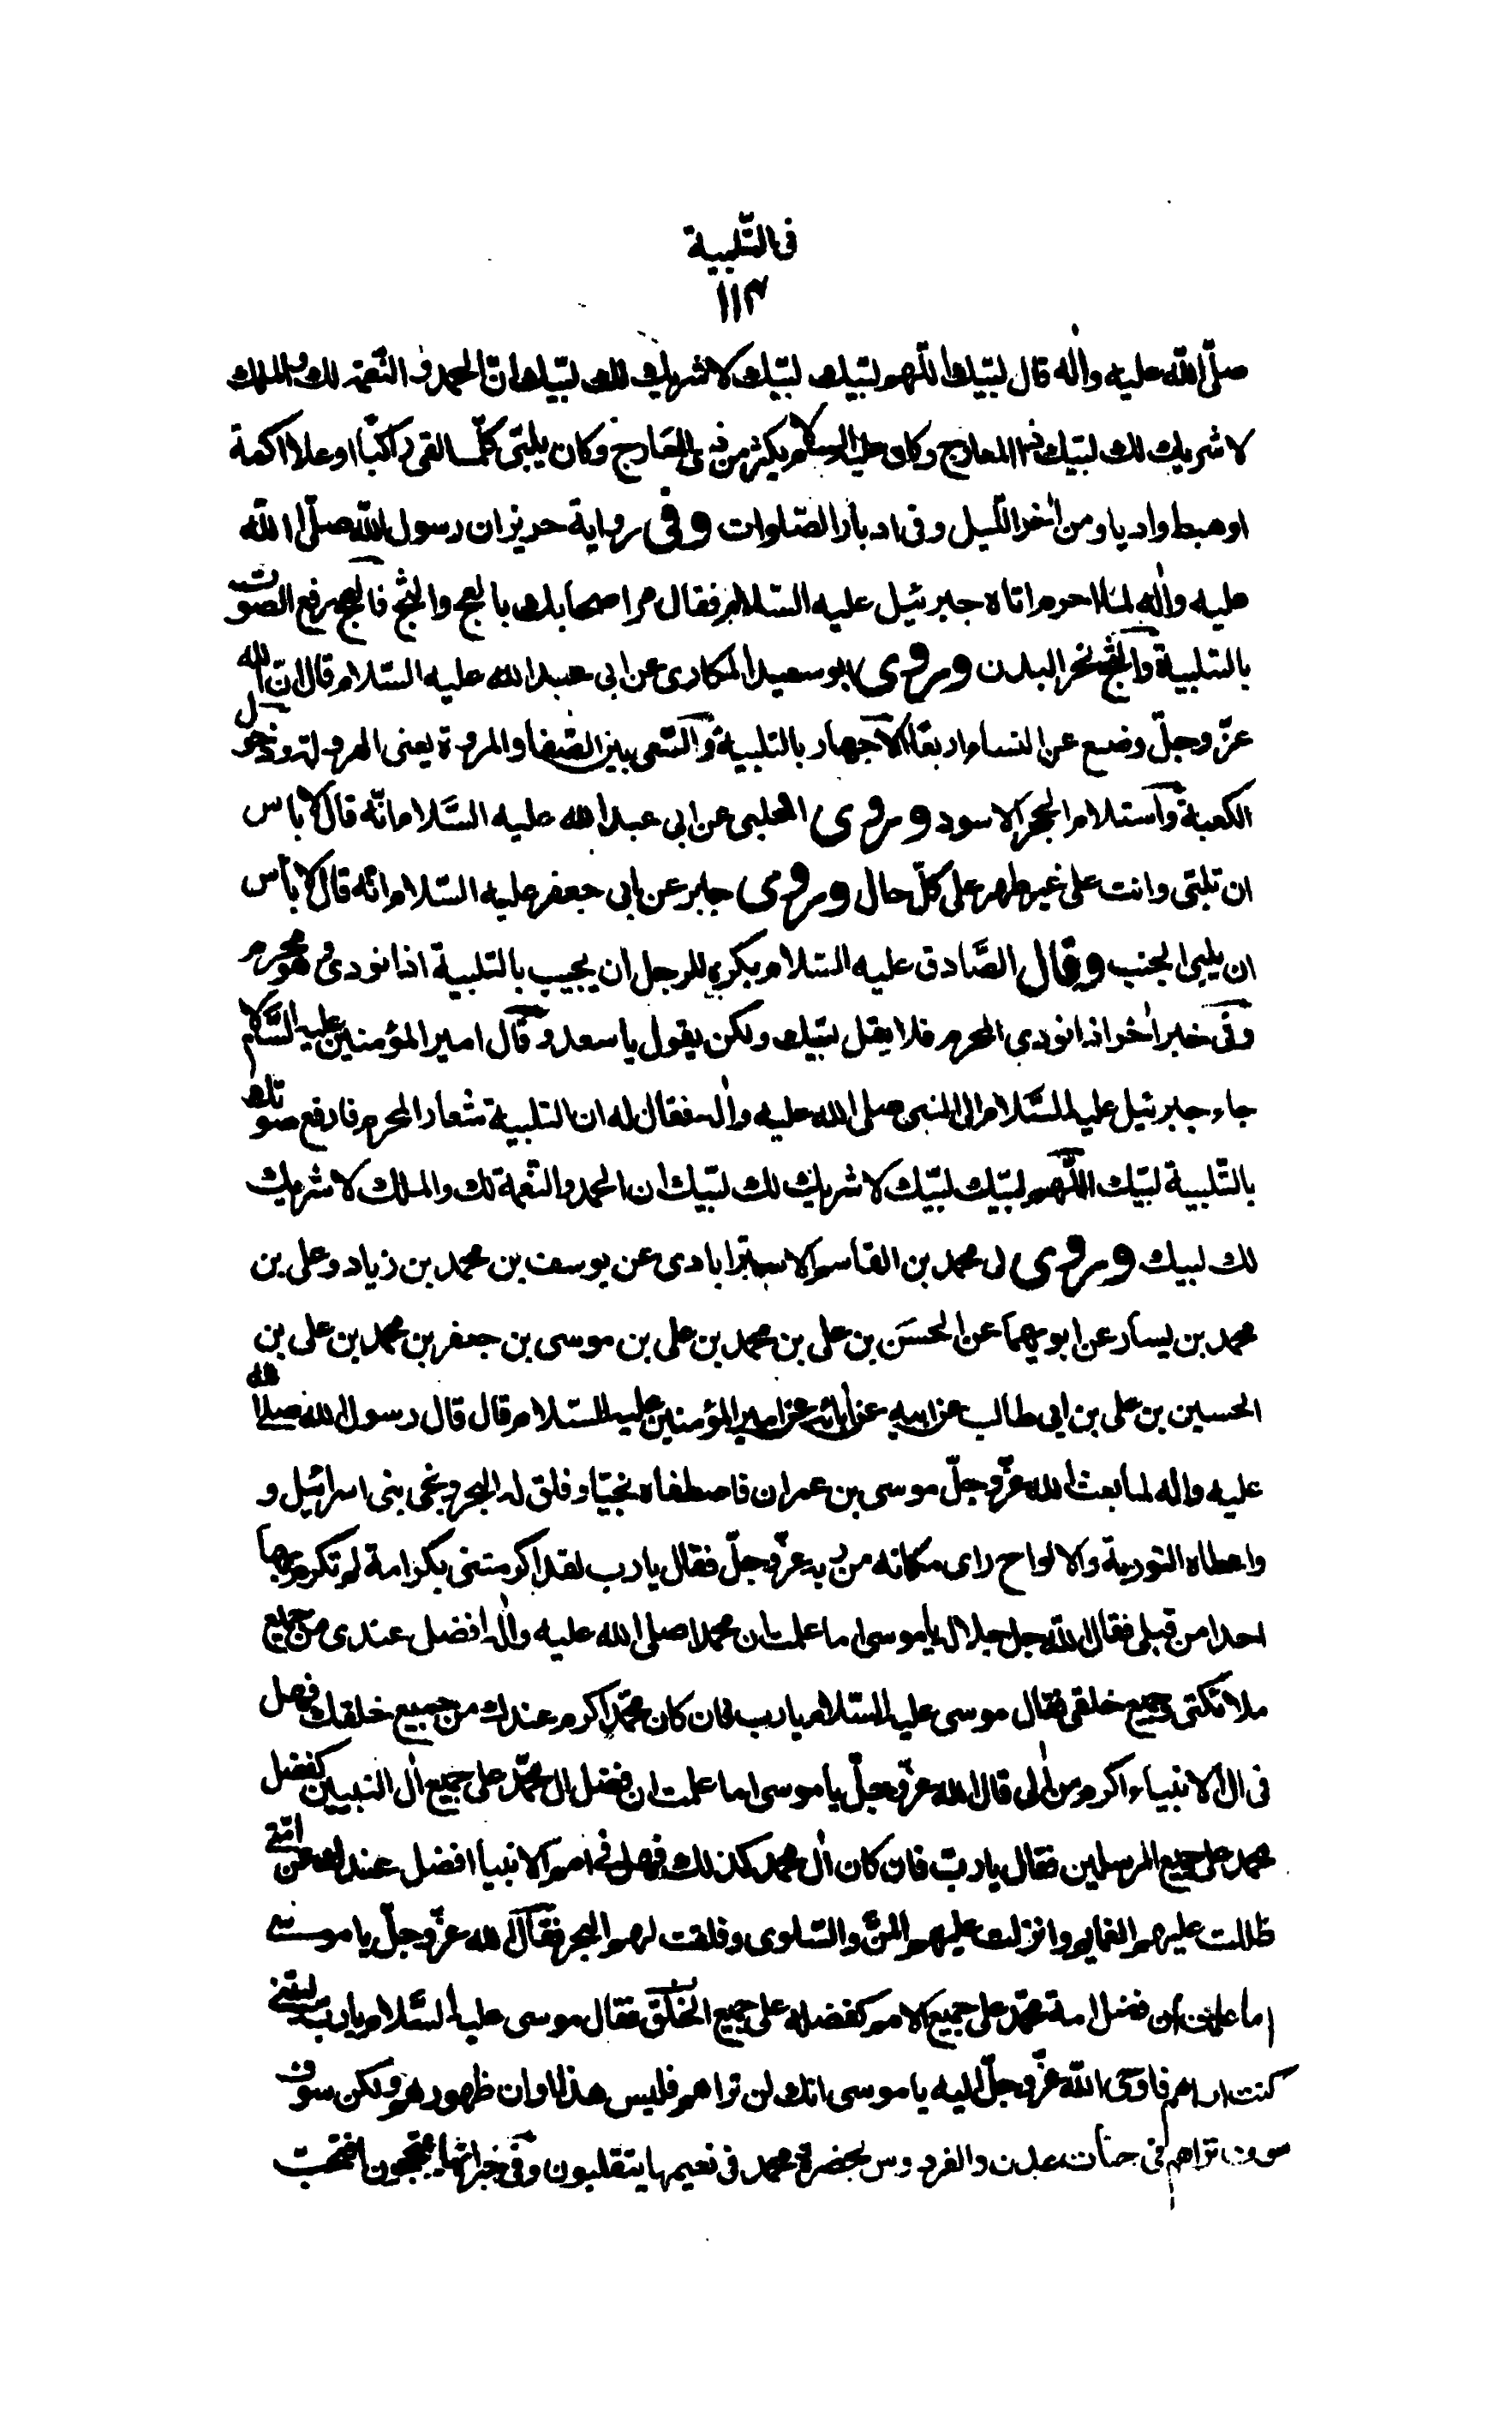 فی التّلبیة
۱۱۳
صلّی الله علیه واٰله قال لبّیك اللّهم لبّیك لبّیك لا شریك لك لبّیك انّ الحمد و النّعمة لك والملك
لا شریك لك لبّیك ذا المعارج وكان علیه السلام یكثر من ذی المعارج وكان یلبّی كلّما لقی راكبًا او علا اكمة
او هبط وادیا ومن اٰخر اللّیل وفی ادبار الصّلوات وفی روایة حریز ان رسول الله صلّی الله
علیه واٰله لمّا احرم اتاه جبرئیل علیه السّلام فقال مر اصحابك بالعج والثج فالعج رفع الصوت
بالتلبیة والثج نحر البدن وروی ابو سعید المكاری عن ابی عبد الله علیه السّلام قال ان الله
عزّ وجلّ وضع عن النساء اربعًا الاجهار بالتلبیة والسّعی بین الصّفا والمروة یعنی الهرولة ودخول
الكعبة واستلام الحجر الاسود وروی الحلبی عن ابی عبد الله علیه السَّلام انّه قال لا باس
ان تلبّی وانت علی غیر طهر علی كلّ حال وروی جابر عن ابی جعفر علیه السّلام انّه قال لا باس
ان یلبی الجنب وقال الصَّادق علیه السّلام یكره للرجل ان یجیب بالتلبیة اذا نودی وهو محرم
وفی خبر اٰخر اذا نودی المحرم فلا یقل لبّیك ولكن یقول یا سعد وقال امیر المؤمنین علیه السَّلام
جاء جبرئیل علیه السَّلام الی النبی صلی الله علیه واٰله فقال له ان التلبیة شعار المحرم فارفع صوتك
بالتّلبیة لبّیك اللّهم لبّیك لبّیك لا شریك لك لبّیك ان الحمد والنّعمة لك والملك لا شریك
لك لبیك وروی لی محمد بن القاسم الاسترابادی عن یوسف بن محمد بن زیاد وعلی بن
محمد بن یسار عن ابویهما عن الحسَن بن علی بن محمد بن علی بن موسی بن جعفر بن محمد بن علی بن
الحسین بن علی بن ابی طالب عن ابیه عن اٰبائه عن امیر المؤمنین علیه السّلام قال قال رسول الله صلی الله
علیه واله لما بعث الله عزّ وجلّ موسی بن عمران فاصطفاه نجیّا وفلق له البحر ونجی بنی اسرائیل و
واعطاه التوریة والالواح رای مكانه من ربه عزّ وجلّ فقال یا رب لقد اكرمتنی بكرامة لم تكرم بها
احدا من قبلی فقال الله جل جلاله یا موسی اما علمت ان محمدا صلی الله علیه واٰله افضل عندی من جمیع
ملائكتی وجمیع خلقی فقال موسی علیه السّلام یا رب فان كان محمّد اكرم عندك من جمیع خلقك فهل
فی اٰل الانبیاء اكرم من اٰلی قال الله عزّ وجلّ یا موسی اما علمت ان فضل اٰل محمّد علی جمیع اٰل النبیین كفضل
محمد علی جمیع المرسلین فقال یا ربّ فان كان اٰل محمد كذلك فهل فی امم الانبیا افضل عندك من امّتی
ظللت علیهم الغمام وانزلت علیهم المنَّ والسّلوی وفلقت لهم البحر فقال الله عزّ وجلّ یا موسی
اما علمت ان فضل امة محمّد علی جمیع الامم كفضله علی جمیع الخلق فقال موسی علیه السَّلام یا رب لیتنی
كنت اراهم فاوحی الله عزّ وجلّ الیه یا موسی انك لن تراهم فلیس هذا اوان ظهورهم ولكن سوف
سوف تراهم فی جنات عدن والفردوس بحضرة محمد فی نعیمها یتقلبون وفی خیراتها یتبحبحون افتحب